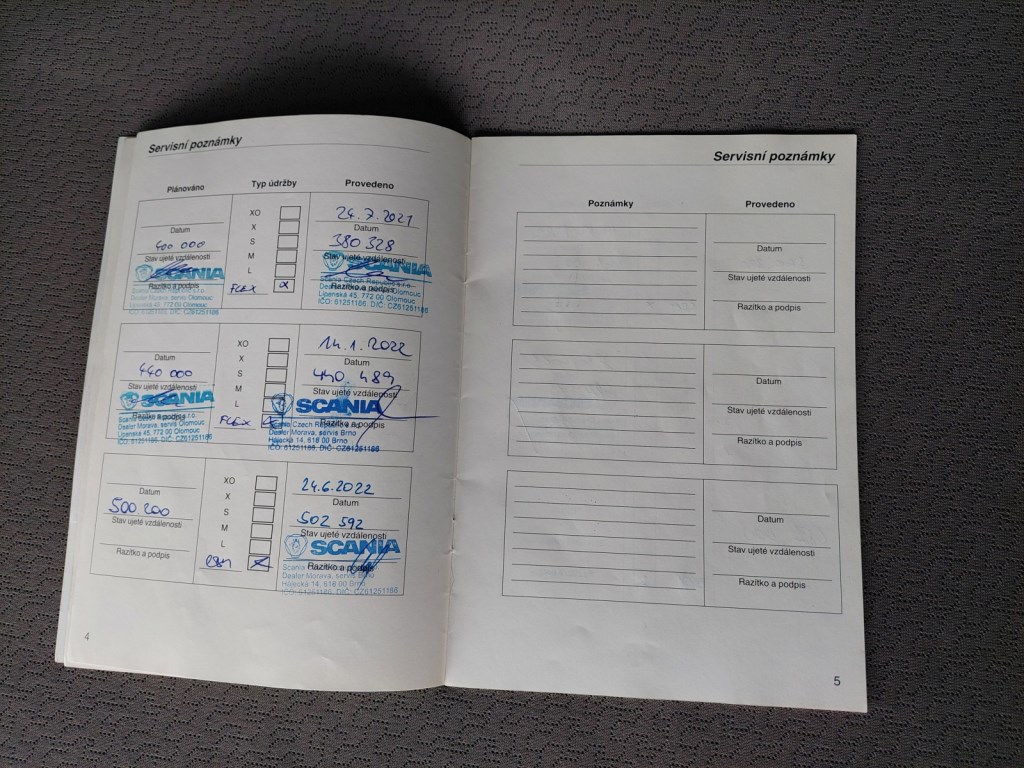 Servisní poznámky
Plánováno Typ údržby Provedeno
XO
X
S
M
L
FLEX
24.7.2021
Datum Datum
400 000 380 328
Stav ujeté vzdálenosti Stav ujeté vzdálenosti
SCANIA SCANIA
Razítko a podpis Razítko a podpis
Scania Czech Republic s.r.o.
Dealer Morava, servis Olomouc Dealer Morava, servis Olomouc
Lipenská 45, 772 00 Olomouc Lipenská 45, 772 00 Olomouc
IČO: 61251186, DIČ: CZ61251186 IČO: 61251186, DIČ: CZ61251186
XO
X
S
M
L
FLEX
14.1.2022
Datum Datum
440 000 440.489
Stav ujeté vzdálenosti Stav ujeté vzdálenosti
SCANIA SCANIA
Razítko a podpis Razítko a podpis
Scania Czech Republic s.r.o. Scania Czech Republic s.r.o.
Dealer Morava, servis Olomouc Dealer Morava, servis Brno
Lipenská 45, 772 00 Olomouc Hájecká 14, 618 00 Brno
IČO: 61251186, DIČ: CZ61251186 IČO: 61251186, DIČ: CZ61251186
XO
X
S
M
L
24.6.2022
Datum Datum
500 200 502 592
Stav ujeté vzdálenosti Stav ujeté vzdálenosti
SCANIA
Razítko a podpis Razítko a podpis
Scania
Dealer Morava, servis Brno
Hájecká 14, 618 00 Brno
IČO: 61251186, DIČ: CZ61251186
4
Servisní poznámky
Poznámky Provedeno
Datum
Stav ujeté vzdálenosti
Razítko a podpis
Datum
Stav ujeté vzdálenosti
Razítko a podpis
Datum
Stav ujeté vzdálenosti
Razítko a podpis
5